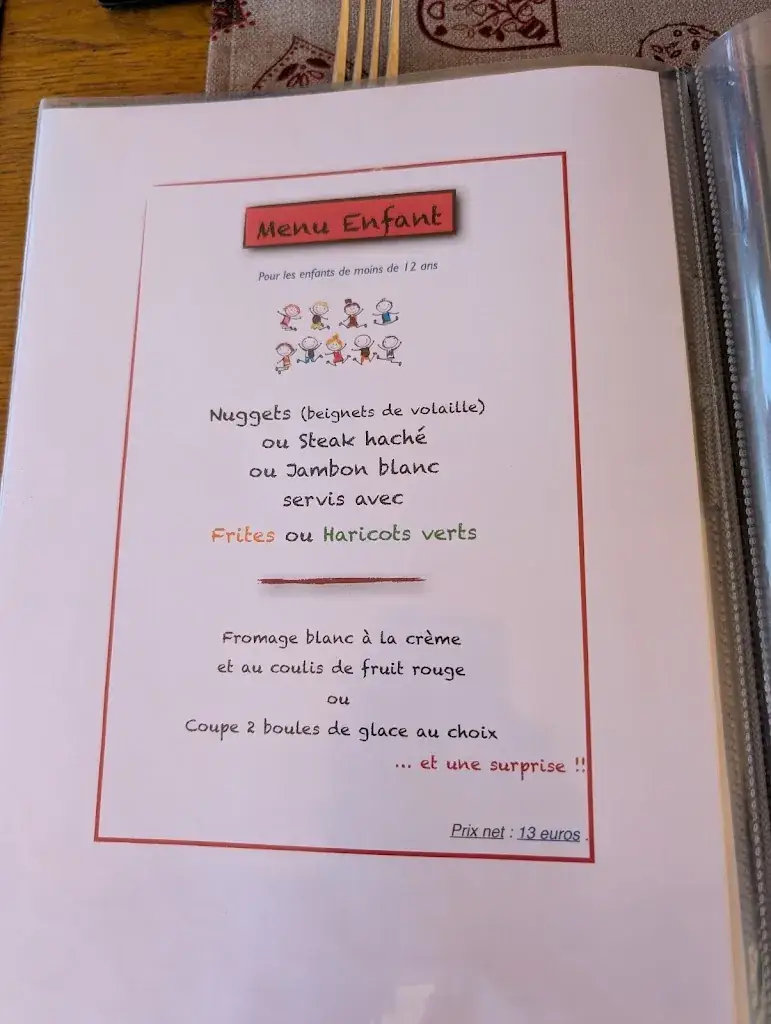 Menu Enfant
Pour les enfants de moins de 12 ans
Nuggets (beignets de volaille)
ou Steak haché
ou Jambon blanc
servis avec
Frites ou Haricots verts
Fromage blanc à la crème
et au coulis de fruit rouge
ou
Coupe 2 boules de glace au choix
... et une surprise !!
Prix net : 13 euros .